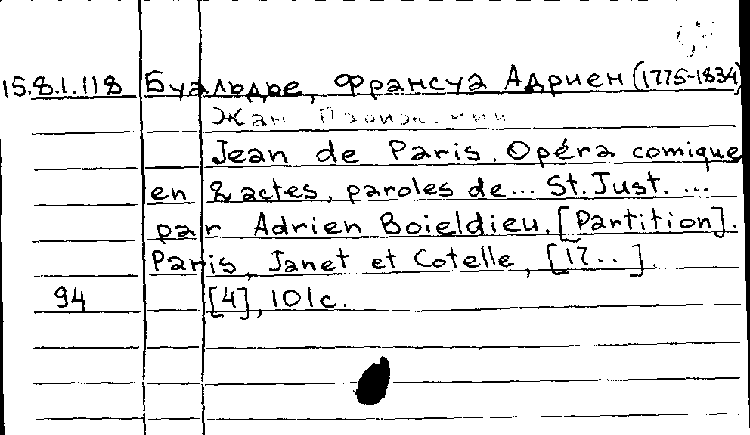 15.8.1.118 Буальдье, Франсуа Адриен (1775-1834)
Жан Парижский
Jean de Paris. Opéra comique
en 2 actes, paroles de... St. Just. ...
par Adrien Boieldieu. [Partition].
Paris, Janet et Cotelle, [17..].
94 [4], 101c.